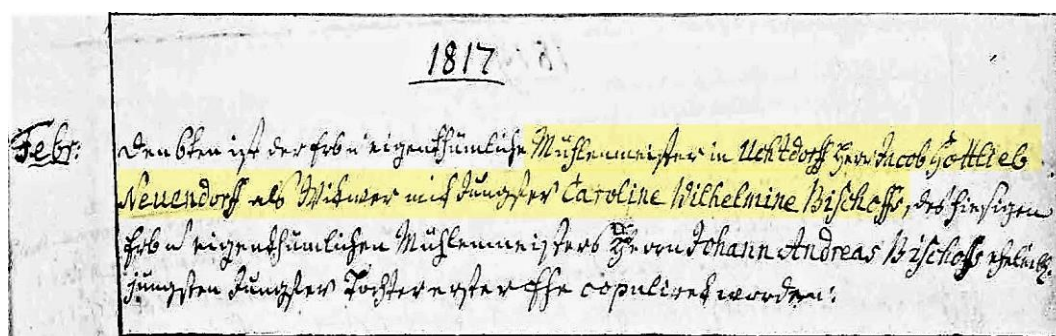 1817
Febr:
den 6ten ist der Erb u eigenthümliche Mühlenmeister in Uchtdorff Herr Jacob Gottlieb
Neuendorff als Witwer mit Jungfer Caroline Wilhelmine Bischoffs, des hiesigen
Erb u eigenthümlichen Mühlenmeisters Herrn Johann Andreas Bischoffs
jüngsten Jungfer Tochter erster Ehe copuliret worden: